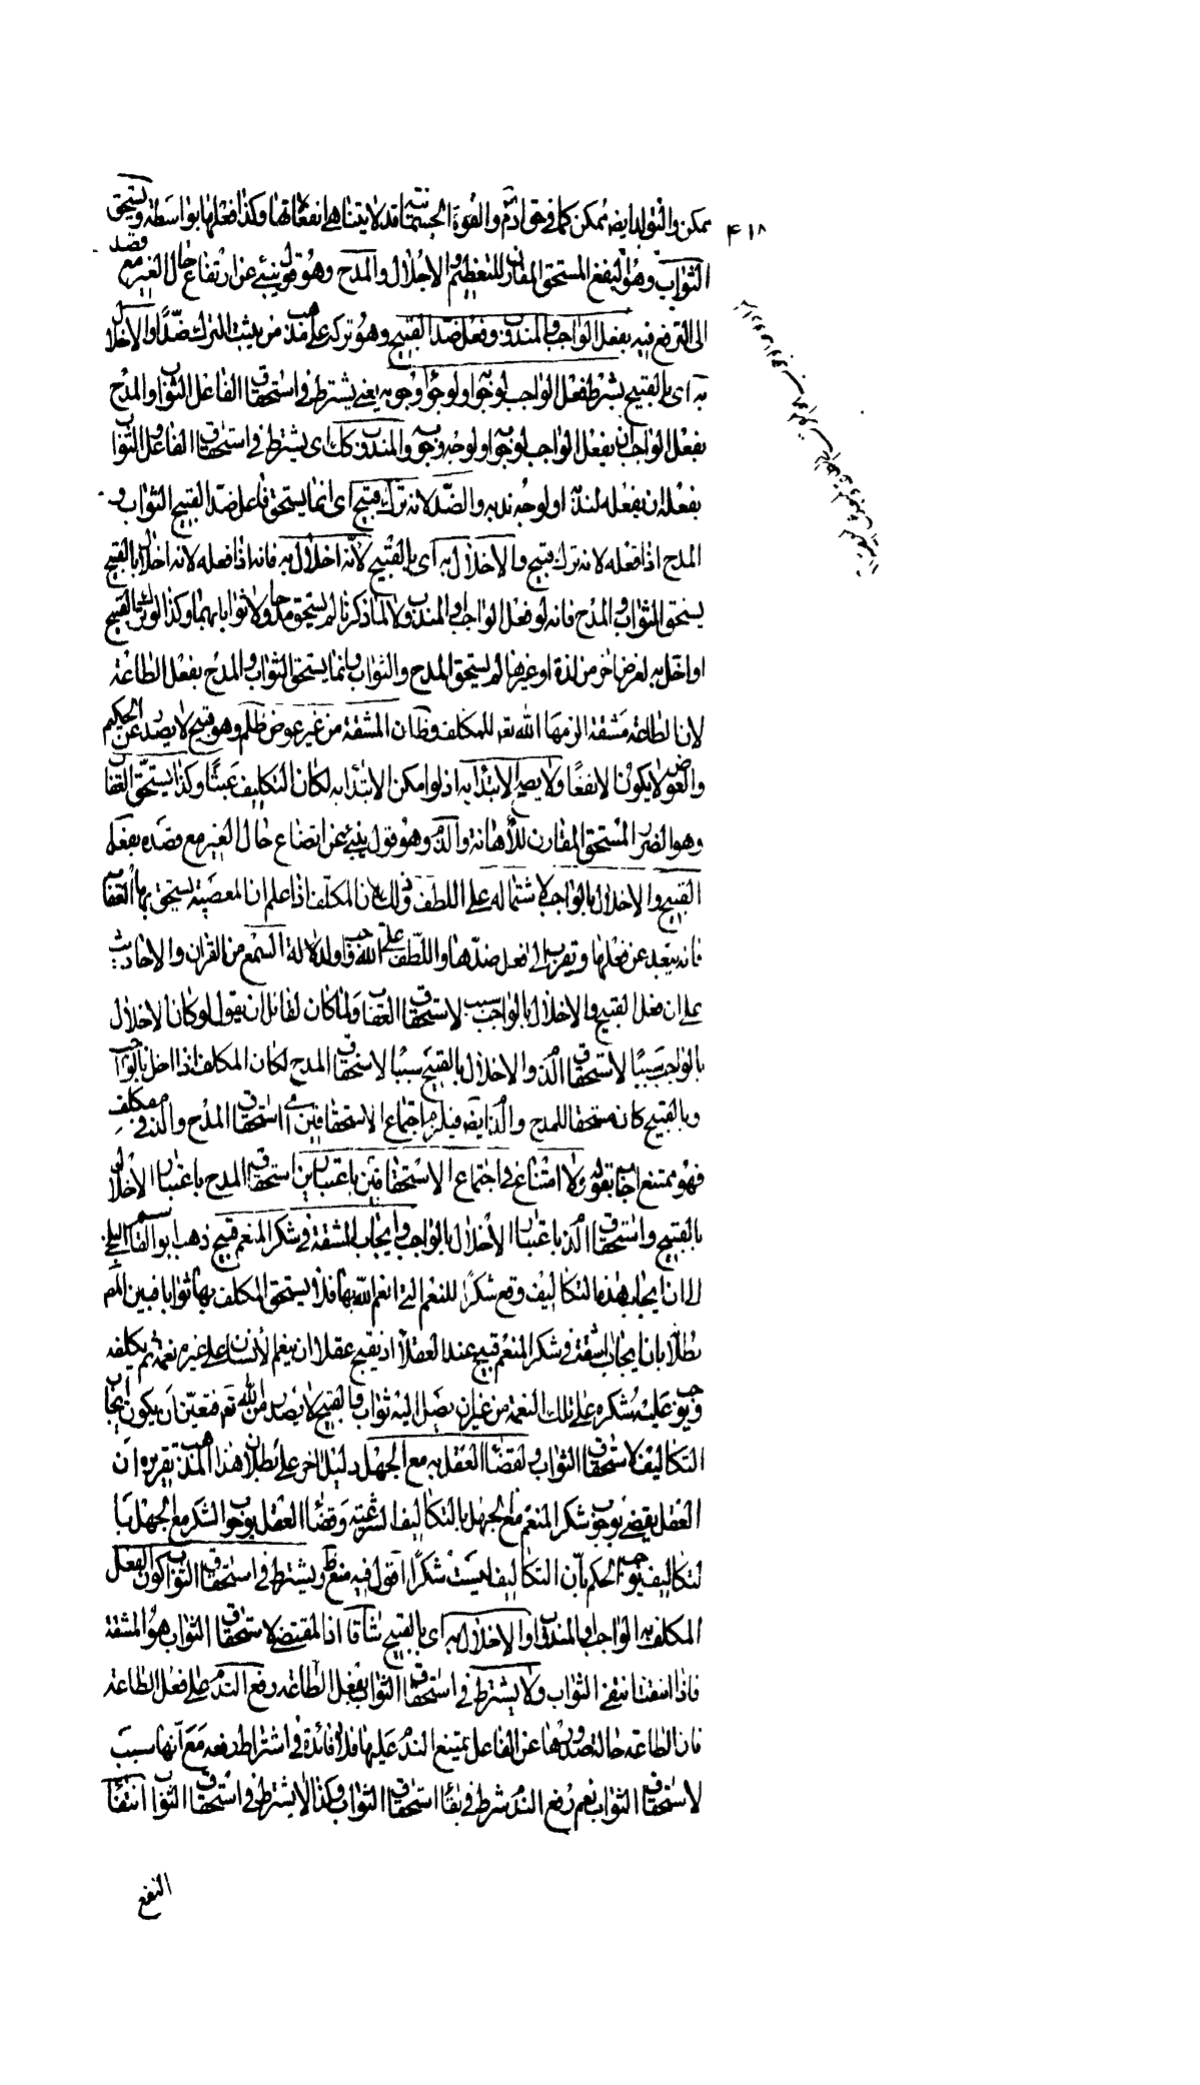 ۴۱۸
ممكن والتولد ايضه ممكن كما فى حق ادم والقوة الجسمانية قد لا يتناهى انفعالاتها وكذا فعلها بواسطة ويستحق
الثواب وهو النفع المستحق المقارن للتعظيم والاجلال والمدح وهو قول ينبئ عن ارتفاع حال الغير مع قصد
الى الترفع فيه بفعل الواجب والمندوب وفعل ضد القبيح وهو تركه على مذهب من يثبت الترك ضدا والاخلال
به اى بالقبيح بشرط فعل الواجب لوجوبه او لوجه وجوبه يعنى يشترط فى استحقاق الفاعل الثواب والمدح
بفعل الواجب ان يفعل الواجب لوجوبه او لوجه وجوبه والمندوب كك اى يشترط فى استحقاق الفاعل الثواب
بفعله ان يفعله لندبه او لوجه ندبه والضد لانه ترك قبيح اى انما يستحق فاعل ضد القبيح الثواب و
المدح اذا فعله لانه ترك قبيح والاخلال به اى بالقبيح لانه اخلال به فانه اذا فعله لانه اخلال بالقبيح
يستحق الثواب والمدح فانه لو فعل الواجب والمندوب لا لما ذكرنا لم يستحق مدحا ولا ثوابا بهما وكذا لو ترك القبيح
او اخل به لغرض اخر من لذة او غيرها لم يستحق المدح والثواب وانما يستحق الثواب والمدح بفعل الطاعة
لان الطاعة مشقة الزمها الله تعه للمكلف وظ ان المشقة من غير عوض ظلم وهو قبيح لا يصدر عن الحكيم
والعوض لا يكون الا نفعا ولا يصح الابتداء به اذ لو امكن الابتداء به لكان التكليف عبثا وكذا يستحق العقاب
وهو الضرر المستحق المقارن للاهانة والذم وهو قول ينبئ عن اتضاع حال الغير مع قصده بفعل
القبيح والاخلال بالواجب لاشتماله على اللطف وذلك لان المكلف اذا علم ان المعصية يستحق بها العقاب
فانه يبعد عن فعلها ويقرب الى فعل ضدها واللطف على الله واجب ولدلالة السمع من القران والاحاديث
على ان فعل القبيح والاخلال بالواجب سبب لاستحقاق العقاب ولما كان لقائل ان يقول لو كان الاخلال
بالواجب سببا لاستحقاق الذم والاخلال بالقبيح سببا لاستحقاق المدح لكان المكلف اذا اخل بالواجب
وبالقبيح كان مستحقا للمدح والذم ايضه فيلزم اجتماع الاستحقاقين اى استحقاق المدح والذم فى مكلف
فهو ممتنع اجاب بقوله ولا امتناع فى اجتماع الاستحقاقين باعتبارين استحقاق المدح باعتبار الاخلال
بالقبيح واستحقاق الذم باعتبار الاخلال بالواجب وايجاب المشقة فى شكر المنعم قبيح ذهب ابو القاسم البلخى
الى ان ايجاب هذه التكاليف وقع شكرا للنعم التى انعم الله بها فلا يستحق المكلف بها ثوابا فبين المص
بطلانه بان ايجاب المشقة فى شكر المنعم قبيح عند العقلاء اذ يقبح عقلا ان ينعم الانسان على غيره نعمة ثم يكلفه
ويوجب عليه شكره على تلك النعمة من غير ان يصل اليه ثواب والقبيح لا يصدر من الله تعه فتعين ان يكون ايجاب
التكاليف لاستحقاق الثواب ولقضاء العقل به مع الجهل دليل اخر على بطلان هذا المذهب تقريره ان
العقل يقضى بوجوب شكر المنعم مع الجهل بالتكاليف الشرعية وقضاء العقل بوجوب الشكر مع الجهل با
لتكاليف يوجب الحكم بان التكاليف ليست شكرا اقول فيه منع ظ ويشترط فى استحقاق الثواب كون الفعل
المكلف به الواجب او المندوب او الاخلال به اى بالقبيح شاقا اذ المقتضى لاستحقاق الثواب هو المشقة
فاذا انتفت انتفى الثواب ولا يشترط فى استحقاق الثواب بفعل الطاعة رفع الندم على فعل الطاعة
فان الطاعة حالة صدورها عن الفاعل يمتنع الندم عليها فلا فائدة فى اشتراط رفعه مع انها سبب
لاستحقاق الثواب نعم رفع الندم شرط فى بقاء استحقاق الثواب وكذا لا يشترط فى استحقاق الثواب انتفاء
النفع